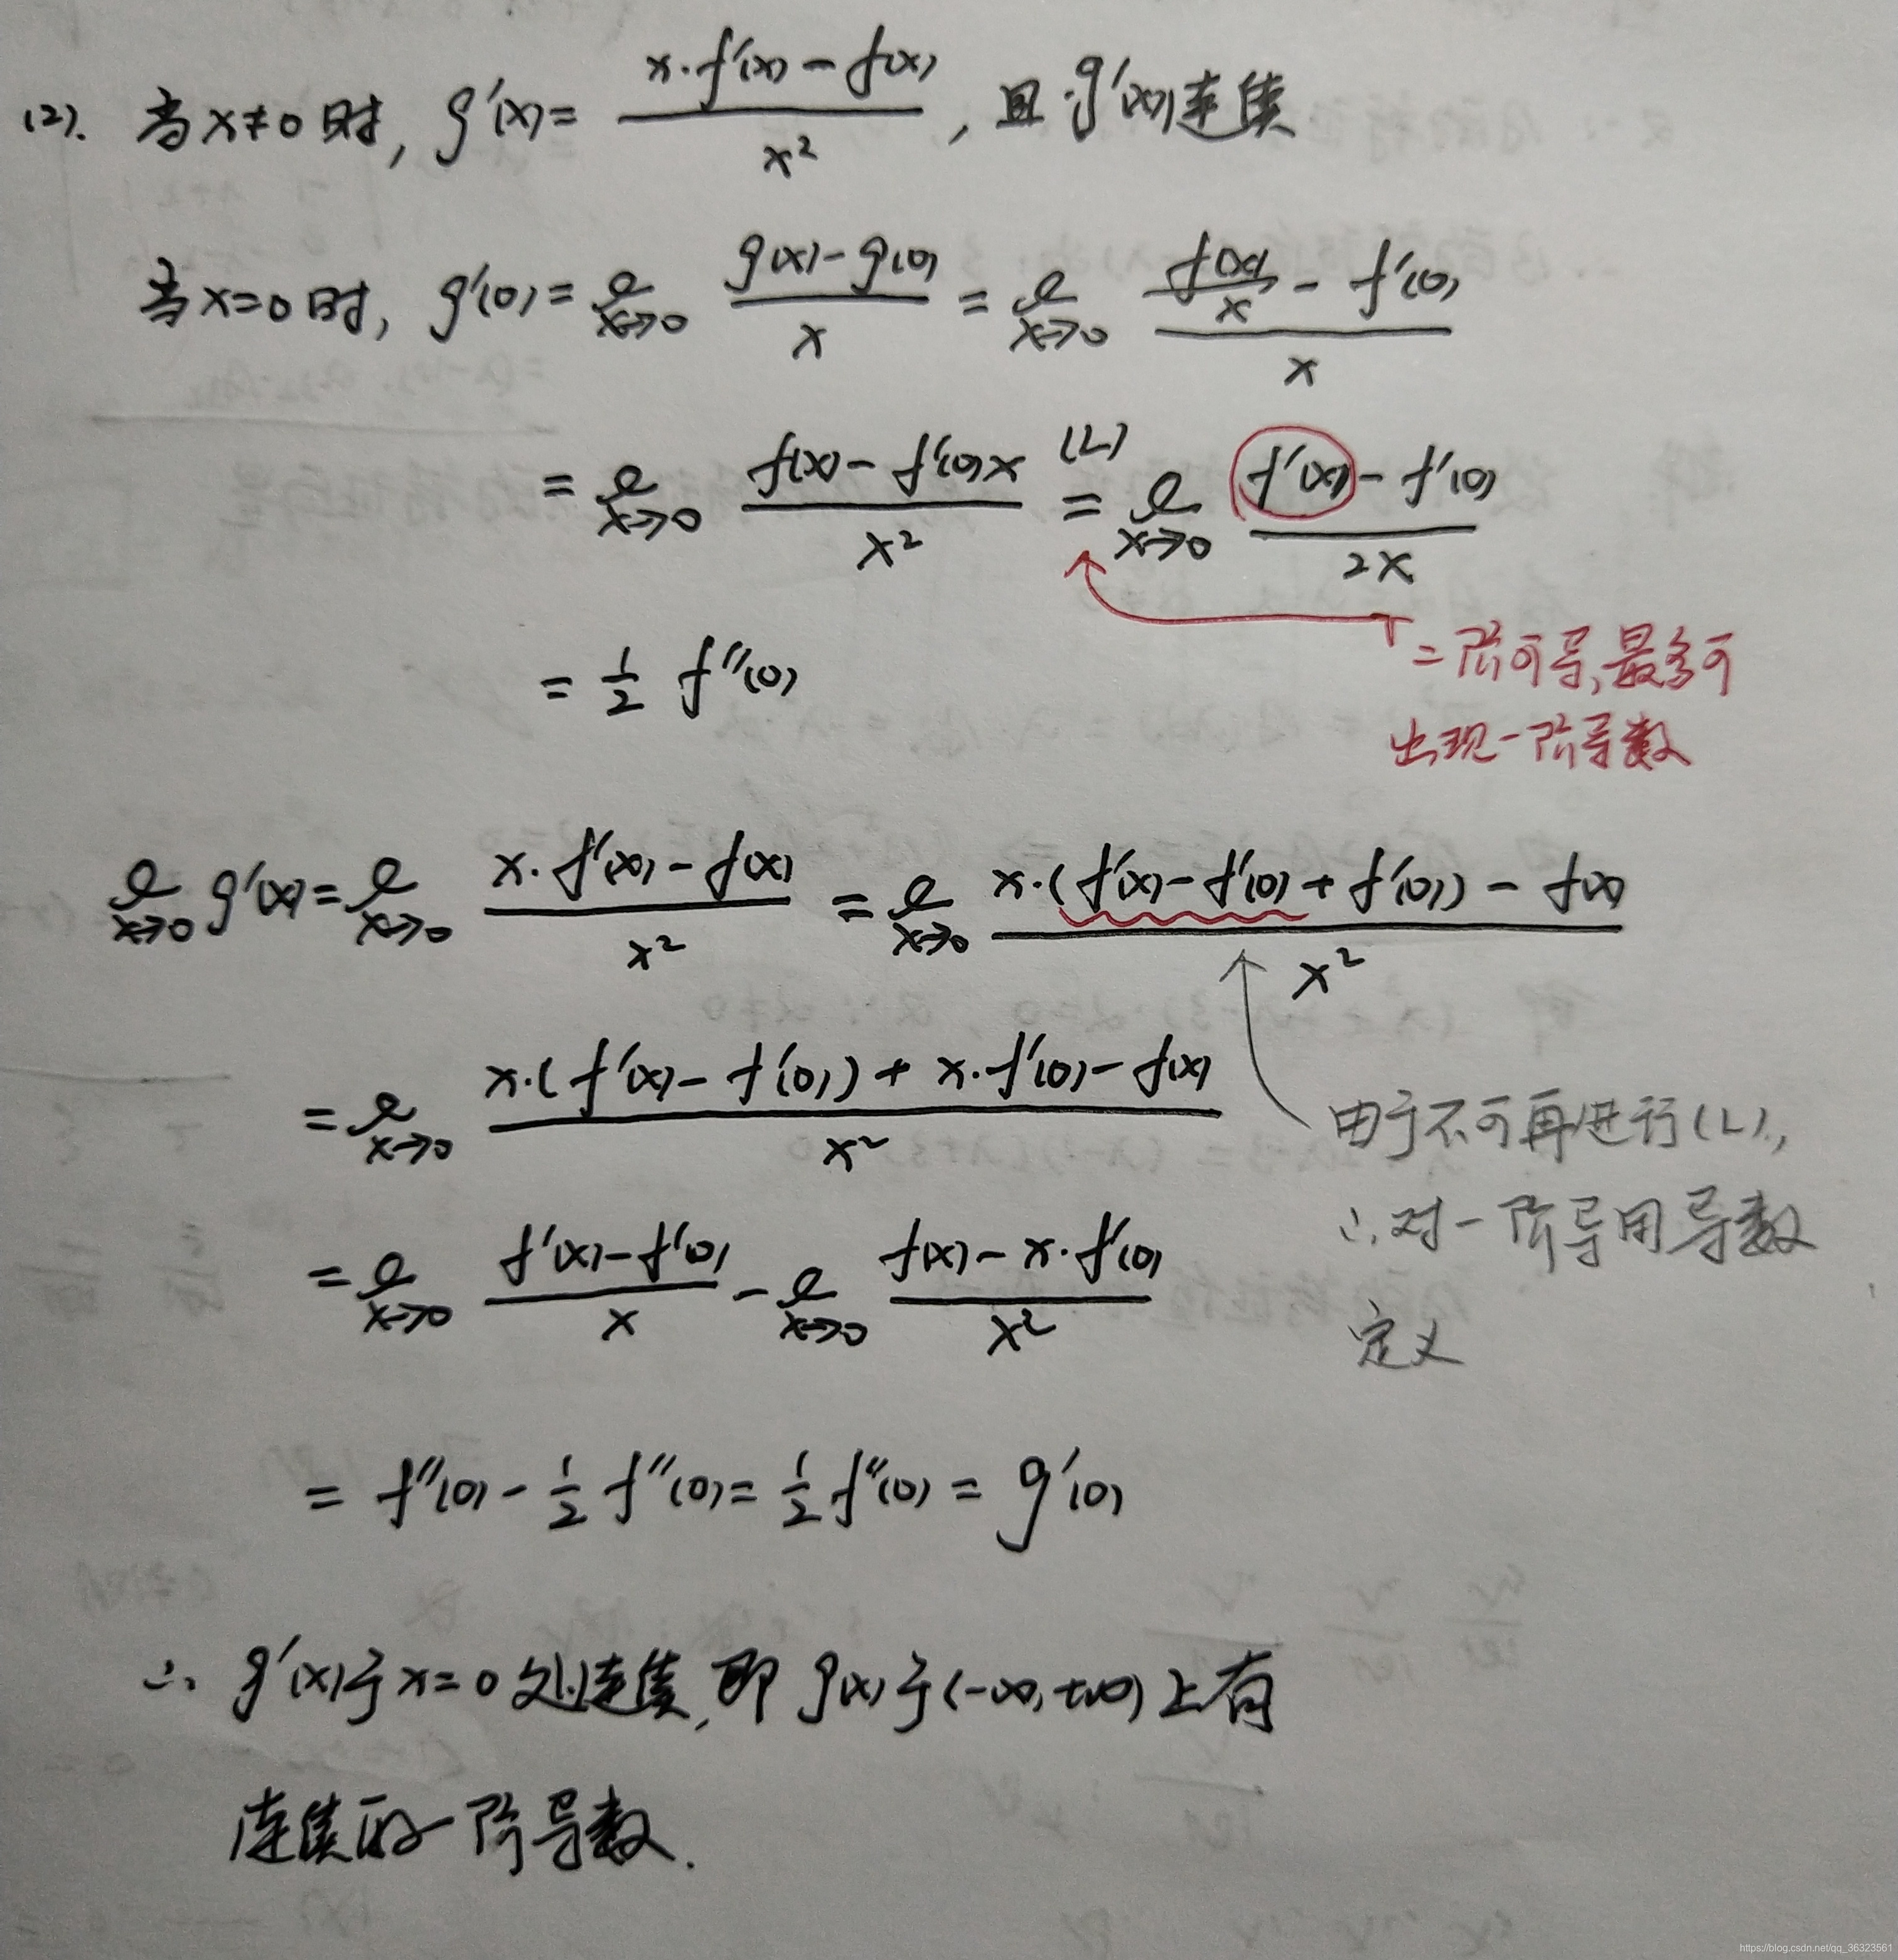 (2). 当x≠0时, g'(x)= (x·f'(x)-f(x))/x², 且g'(x)连续
当x=0时, g'(0)= lim x→0 (g(x)-g(0))/x = lim x→0 (f(x)/x - f'(0))/x
= lim x→0 (f(x)-f'(0)x)/x² (L)= lim x→0 (f'(x)-f'(0))/2x
= 1/2 f''(0)
二阶可导,最多可
出现一阶导数
lim x→0 g'(x)= lim x→0 (x·f'(x)-f(x))/x² = lim x→0 (x·(f'(x)-f'(0)+f'(0))-f(x))/x²
= lim x→0 (x·(f'(x)-f'(0))+x·f'(0)-f(x))/x²
由于不可再进行(L),
∴对一阶导用导数
定义
= lim x→0 (f'(x)-f'(0))/x - lim x→0 (f(x)-x·f'(0))/x²
= f''(0)-1/2 f''(0)=1/2 f''(0)=g'(0)
∴ g'(x)于x=0处连续,即g(x)于(-∞,+∞)上有
连续的一阶导数.
https://blog.csdn.net/qq_36323561